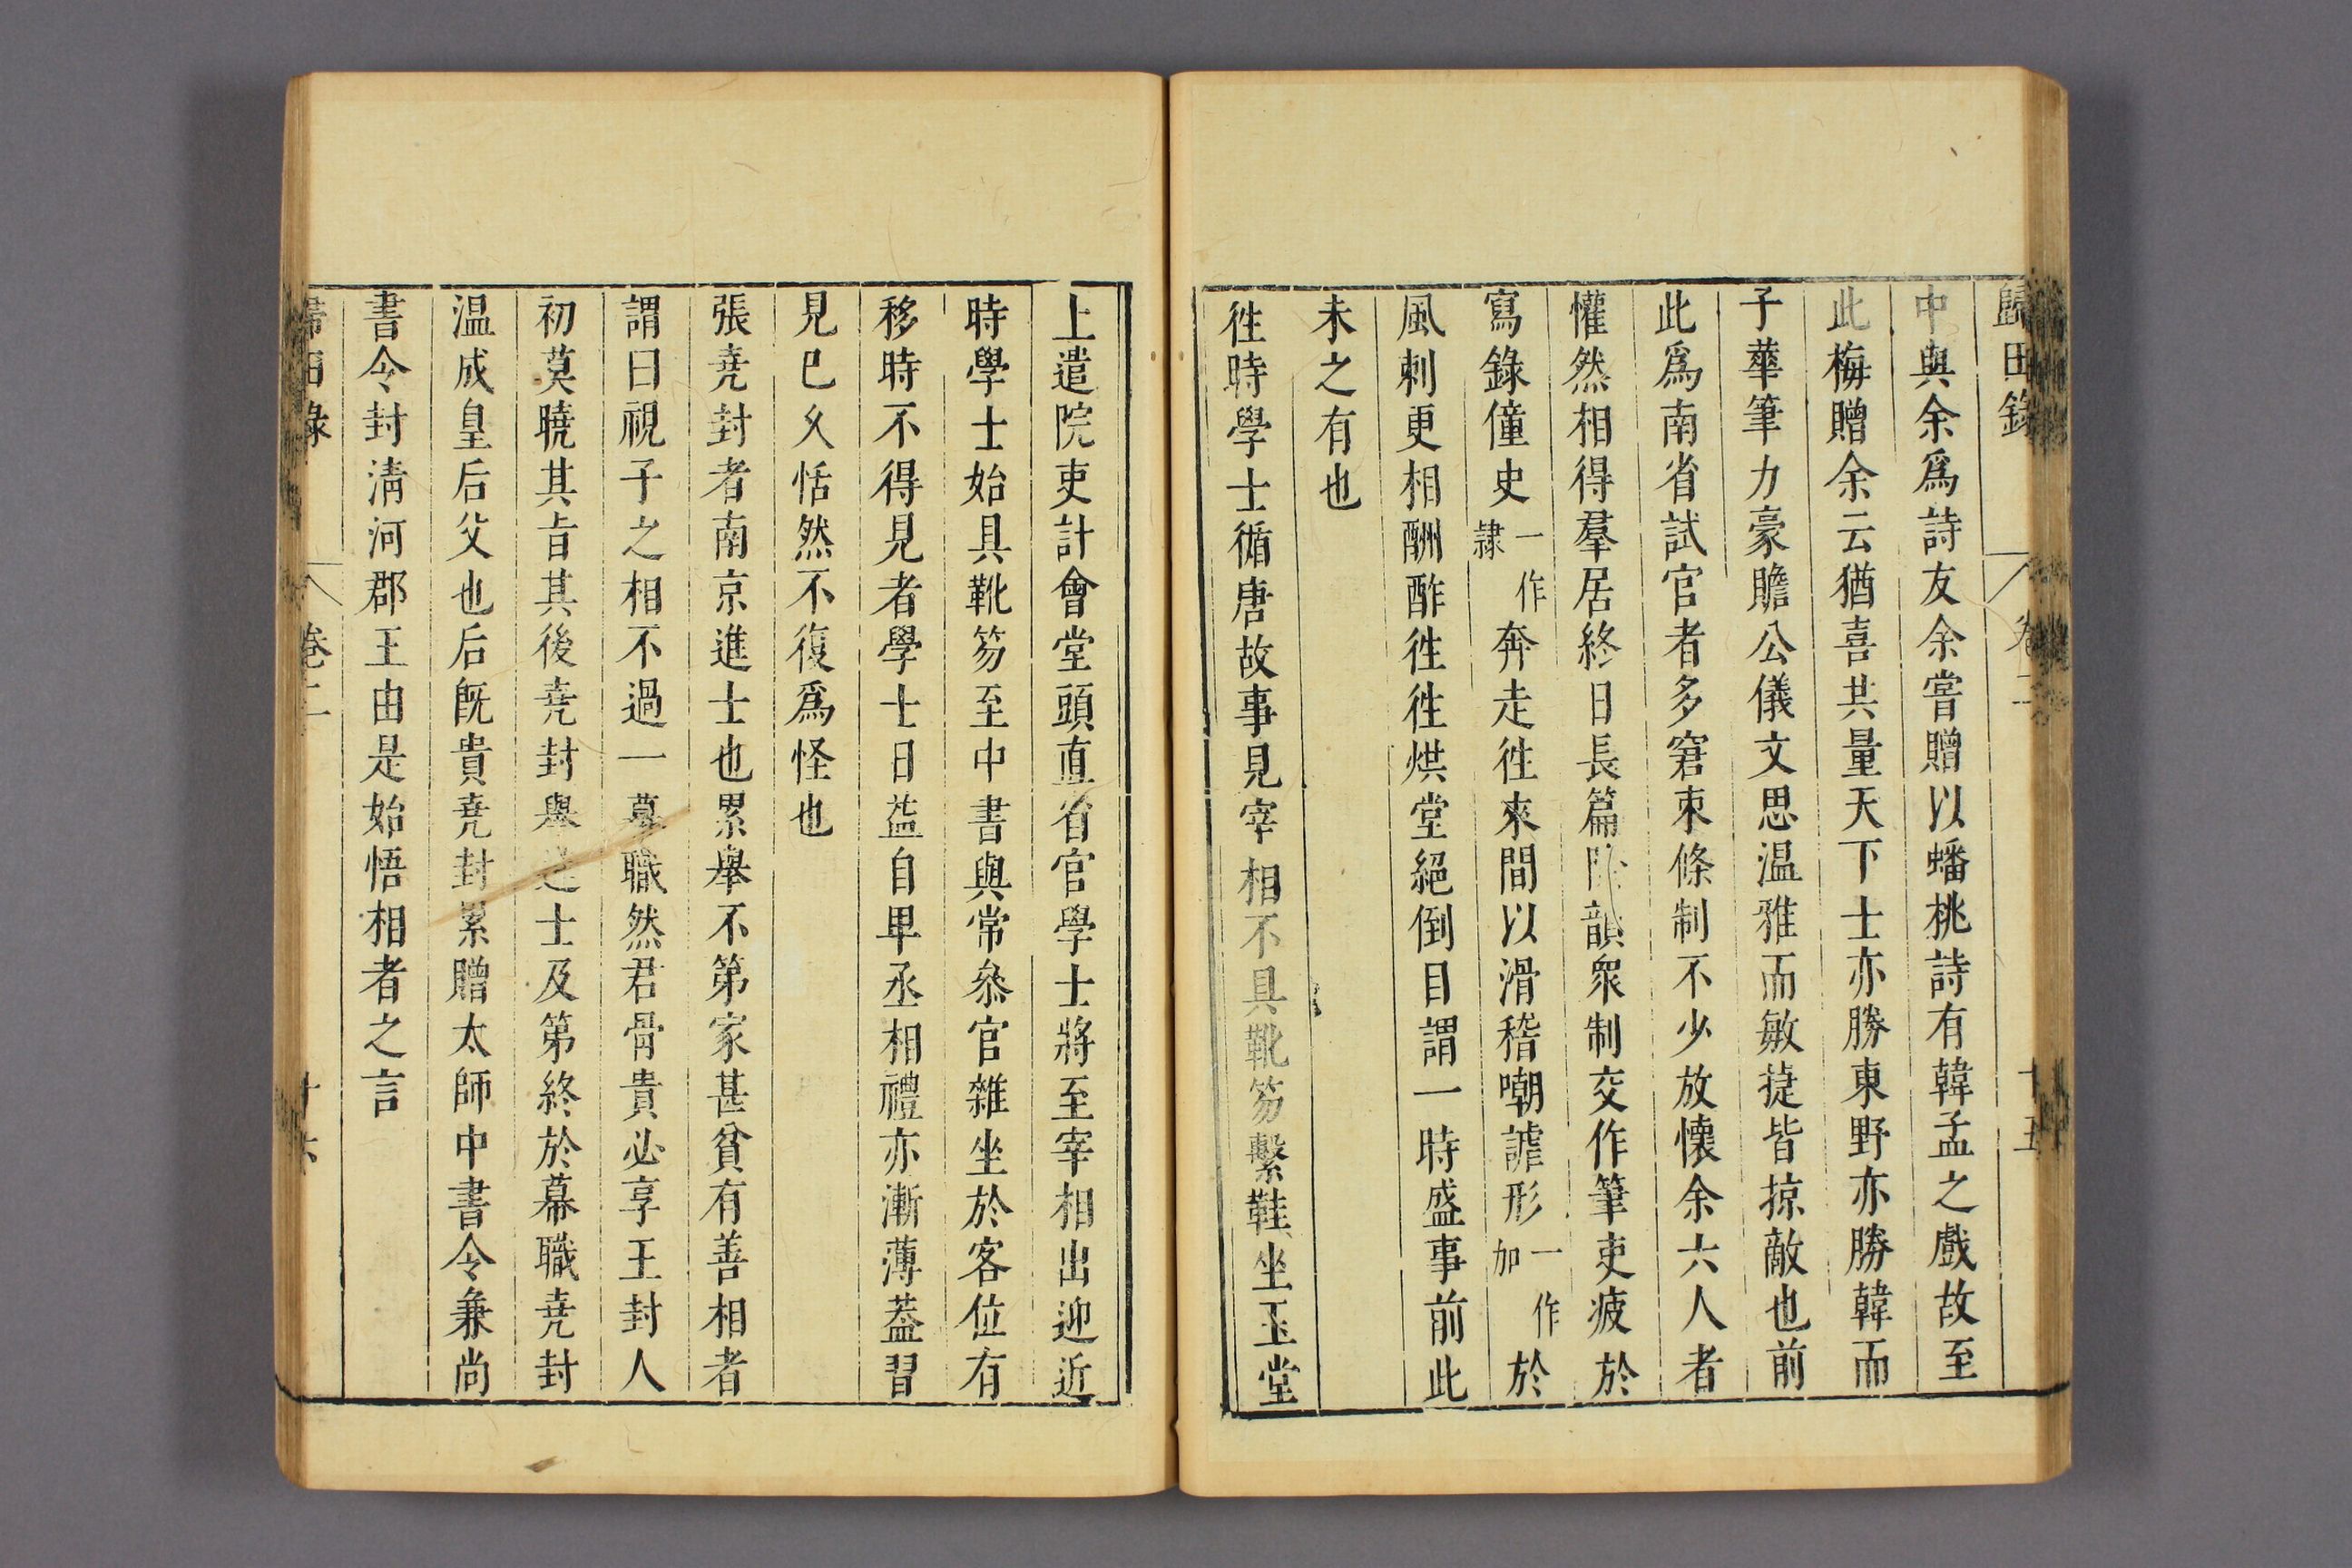 歸田錄 卷二 十五
中與余爲詩友余嘗贈以蟠桃詩有韓孟之戲故至
此梅贈余云猶喜共量天下士亦勝東野亦勝韓而
子華筆力豪贍公儀文思温雅而敏捷皆掠敵也前
此爲南省試官者多窘束條制不少放懷余六人者
懽然相得羣居終日長篇險韻衆制交作筆吏疲於
寫錄僮史一作隸奔走徃來間以滑稽嘲謔形一作加於
風刺更相酬酢徃徃烘堂絕倒目謂一時盛事前此
未之有也
徃時學士循唐故事見宰相不具靴笏繫鞋坐玉堂
上遣院吏計會堂頭直省官學士將至宰相出迎近
時學士始具靴笏至中書與常叅官雜坐於客位有
移時不得見者學士日益自卑丞相禮亦漸薄葢習
見已久恬然不復爲怪也
張堯封者南京進士也累舉不第家甚貧有善相者
謂曰視子之相不過一幕職然君骨貴必享王封人
初莫曉其㫖其後堯封舉進士及第終於幕職堯封
温成皇后父也后既貴堯封累贈太師中書令兼尚
書令封清河郡王由是始悟相者之言
歸田錄 卷二 十六